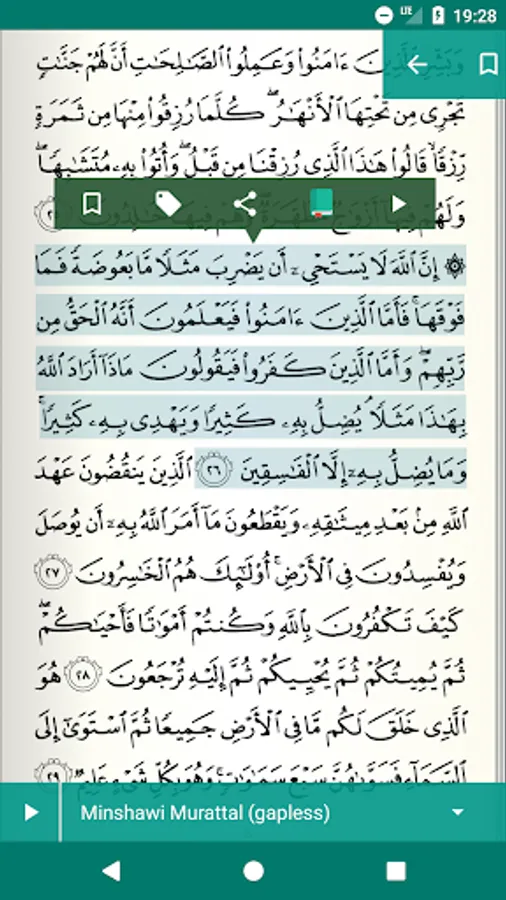 19:28
LTE
وَبَشِّرِ ٱلَّذِينَ ءَامَنُوا۟ وَعَمِلُوا۟ ٱلصَّـٰلِحَـٰتِ أَنَّ لَهُمْ جَنَّـٰتٍ
تَجْرِى مِن تَحْتِهَا ٱلْأَنْهَـٰرُ ۖ كُلَّمَا رُزِقُوا۟ مِنْهَا مِن ثَمَرَةٍ
رِّزْقًا ۙ قَالُوا۟ هَـٰذَا ٱلَّذِى رُزِقْنَا مِن قَبْلُ ۖ وَأُتُوا۟ بِهِۦ مُتَشَـٰبِهًا ۖ
وَلَهُمْ فِيهَآ أَزْوَٰجٌ مُّطَهَّرَةٌ ۖ وَهُمْ فِيهَا خَـٰلِدُونَ
۞ إِنَّ ٱللَّهَ لَا يَسْتَحْىِۦٓ أَن يَضْرِبَ مَثَلًا مَّا بَعُوضَةً فَمَا
فَوْقَهَا ۚ فَأَمَّا ٱلَّذِينَ ءَامَنُوا۟ فَيَعْلَمُونَ أَنَّهُ ٱلْحَقُّ مِن
رَّبِّهِمْ ۖ وَأَمَّا ٱلَّذِينَ كَفَرُوا۟ فَيَقُولُونَ مَاذَآ أَرَادَ ٱللَّهُ
بِهَـٰذَا مَثَلًا ۘ يُضِلُّ بِهِۦ كَثِيرًا وَيَهْدِى بِهِۦ كَثِيرًا ۚ
وَمَا يُضِلُّ بِهِۦٓ إِلَّا ٱلْفَـٰسِقِينَ ٢٦ ٱلَّذِينَ يَنقُضُونَ عَهْدَ
ٱللَّهِ مِنۢ بَعْدِ مِيثَـٰقِهِۦ وَيَقْطَعُونَ مَآ أَمَرَ ٱللَّهُ بِهِۦٓ أَن يُوصَلَ
وَيُفْسِدُونَ فِى ٱلْأَرْضِ ۚ أُو۟لَـٰٓئِكَ هُمُ ٱلْخَـٰسِرُونَ ٢٧
كَيْفَ تَكْفُرُونَ بِٱللَّهِ وَكُنتُمْ أَمْوَٰتًا فَأَحْيَـٰكُمْ ۖ
ثُمَّ يُمِيتُكُمْ ثُمَّ يُحْيِيكُمْ ثُمَّ إِلَيْهِ تُرْجَعُونَ ٢٨ هُوَ
ٱلَّذِى خَلَقَ لَكُم مَّا فِى ٱلْأَرْضِ جَمِيعًا ثُمَّ ٱسْتَوَىٰٓ إِلَى
ٱلسَّمَآءِ فَسَوَّىٰهُنَّ سَبْعَ سَمَـٰوَٰتٍ ۚ وَهُوَ بِكُلِّ شَىْءٍ عَلِيمٌ ٢٩
Minshawi Murattal (gapless)